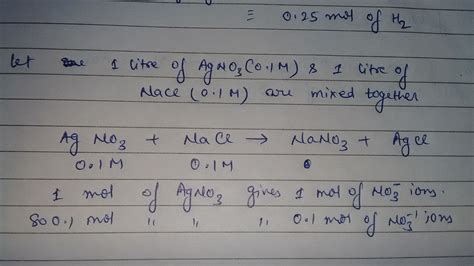 ≡ 0.25 mol of H2
Let 1 litre of AgNO3 (0.1M) & 1 litre of
NaCl (0.1M) are mixed together
AgNO3 + NaCl → NaNO3 + AgCl
0.1M 0.1M 0
1 mol of AgNO3 gives 1 mol of NO3⁻ ions.
So 0.1 mol " " " 0.1 mol of NO3⁻¹ ions